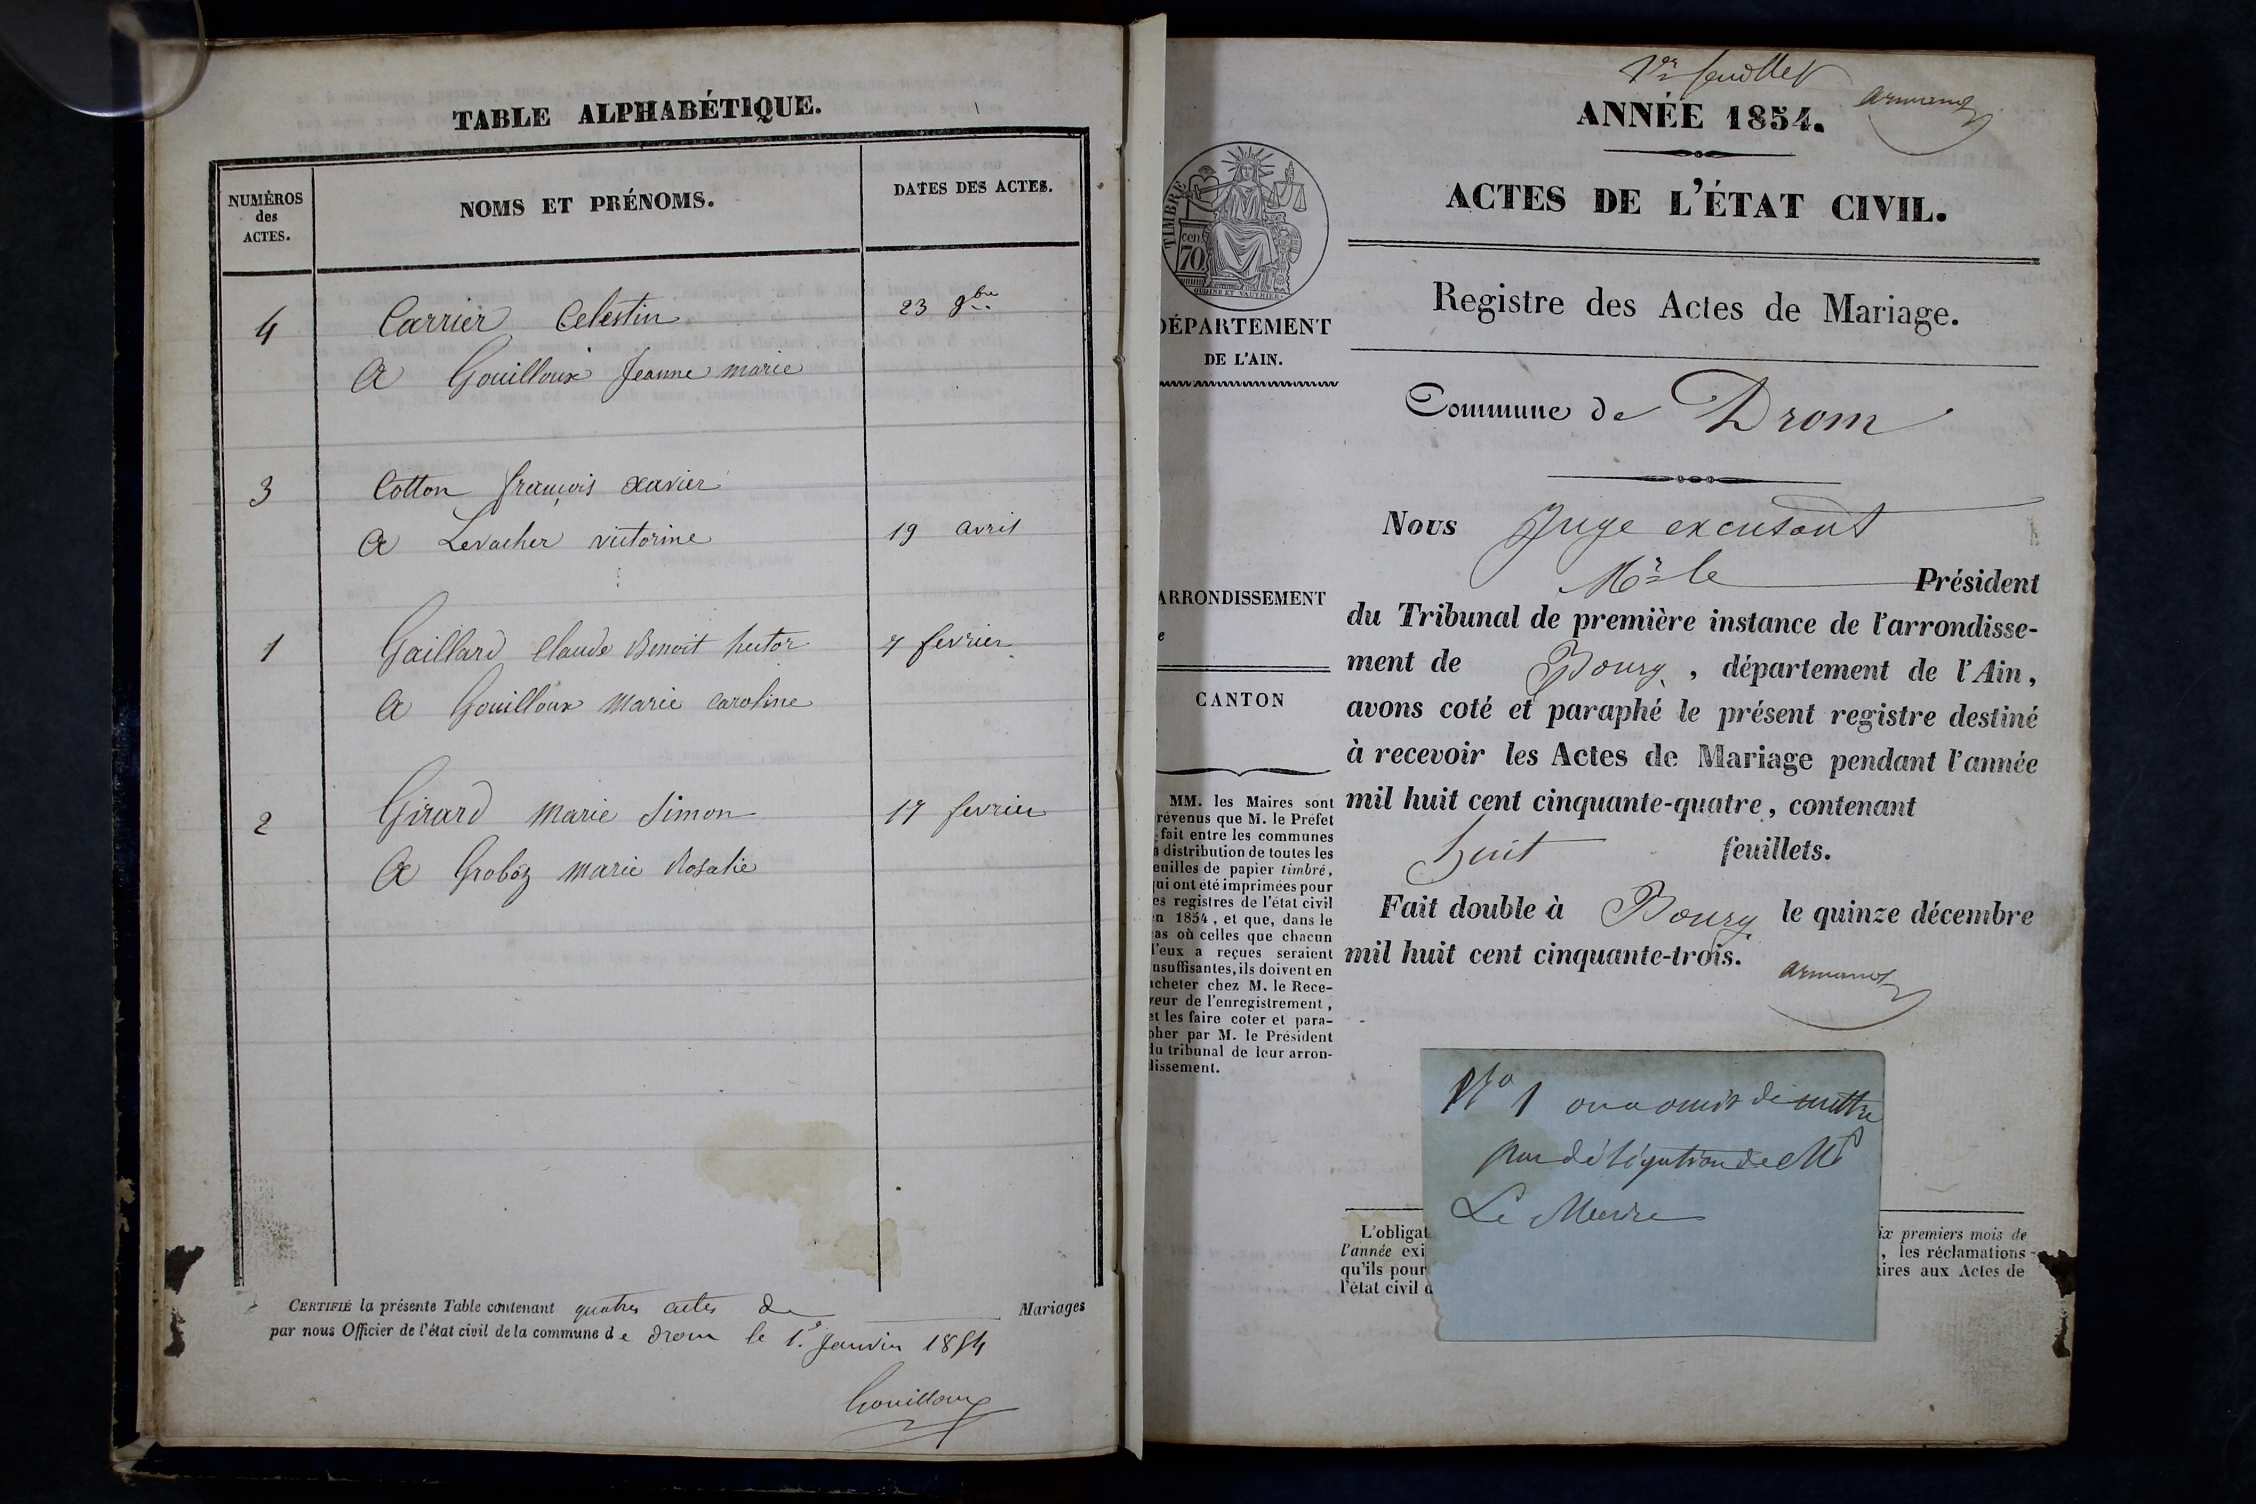 TABLE ALPHABÉTIQUE.
NUMÉROS
des
ACTES.
NOMS ET PRÉNOMS.
DATES DES ACTES.
4 Carrier Celestin 23 9bre
A Gouilloux Jeanne marie
3 Cotton françois xavier
A Levacher victorine 19 avril
1 Gaillard Claude Benoit hector 7 fevrier
A Gouilloux Marie Caroline
2 Girard Marie Simon 17 fevrier
A Groboz Marie Rosalie
CERTIFIÉ la présente Table contenant quatres actes de Mariages
par nous Officier de l'état civil de la commune de drom le 1er Janvier 1854
Gouilloux
1er feuillet
armand
ANNÉE 1854.
ACTES DE L'ÉTAT CIVIL.
TIMBRE
cen.
70
OUDINE ET VAUTHIER.
DÉPARTEMENT
DE L'AIN.
Registre des Actes de Mariage.
Commune de Drom
Nous Juge excusant
Mr le Président
ARRONDISSEMENT
e
CANTON
du Tribunal de première instance de l'arrondisse-
ment de Bourg, département de l'Ain,
avons coté et paraphé le présent registre destiné
à recevoir les Actes de Mariage pendant l'année
mil huit cent cinquante-quatre, contenant
huit feuillets.
Fait double à Bourg le quinze décembre
mil huit cent cinquante-trois.
armand
MM. les Maires sont
révenus que M. le Préfet
fait entre les communes
a distribution de toutes les
euilles de papier timbré,
ui ont été imprimées pour
es registres de l'état civil
n 1854, et que, dans le
as où celles que chacun
d'eux a reçues seraient
nsuffisantes, ils doivent en
acheter chez M. le Rece-
veur de l'enregistrement,
et les faire coter et para-
pher par M. le Président
du tribunal de leur arron-
dissement.
No 1 on a omis de mettre
par délégation de Mr
Le Maire
L'obligat ix premiers mois de
l'année exi , les réclamations
qu'ils pour aires aux Actes de
l'état civil d